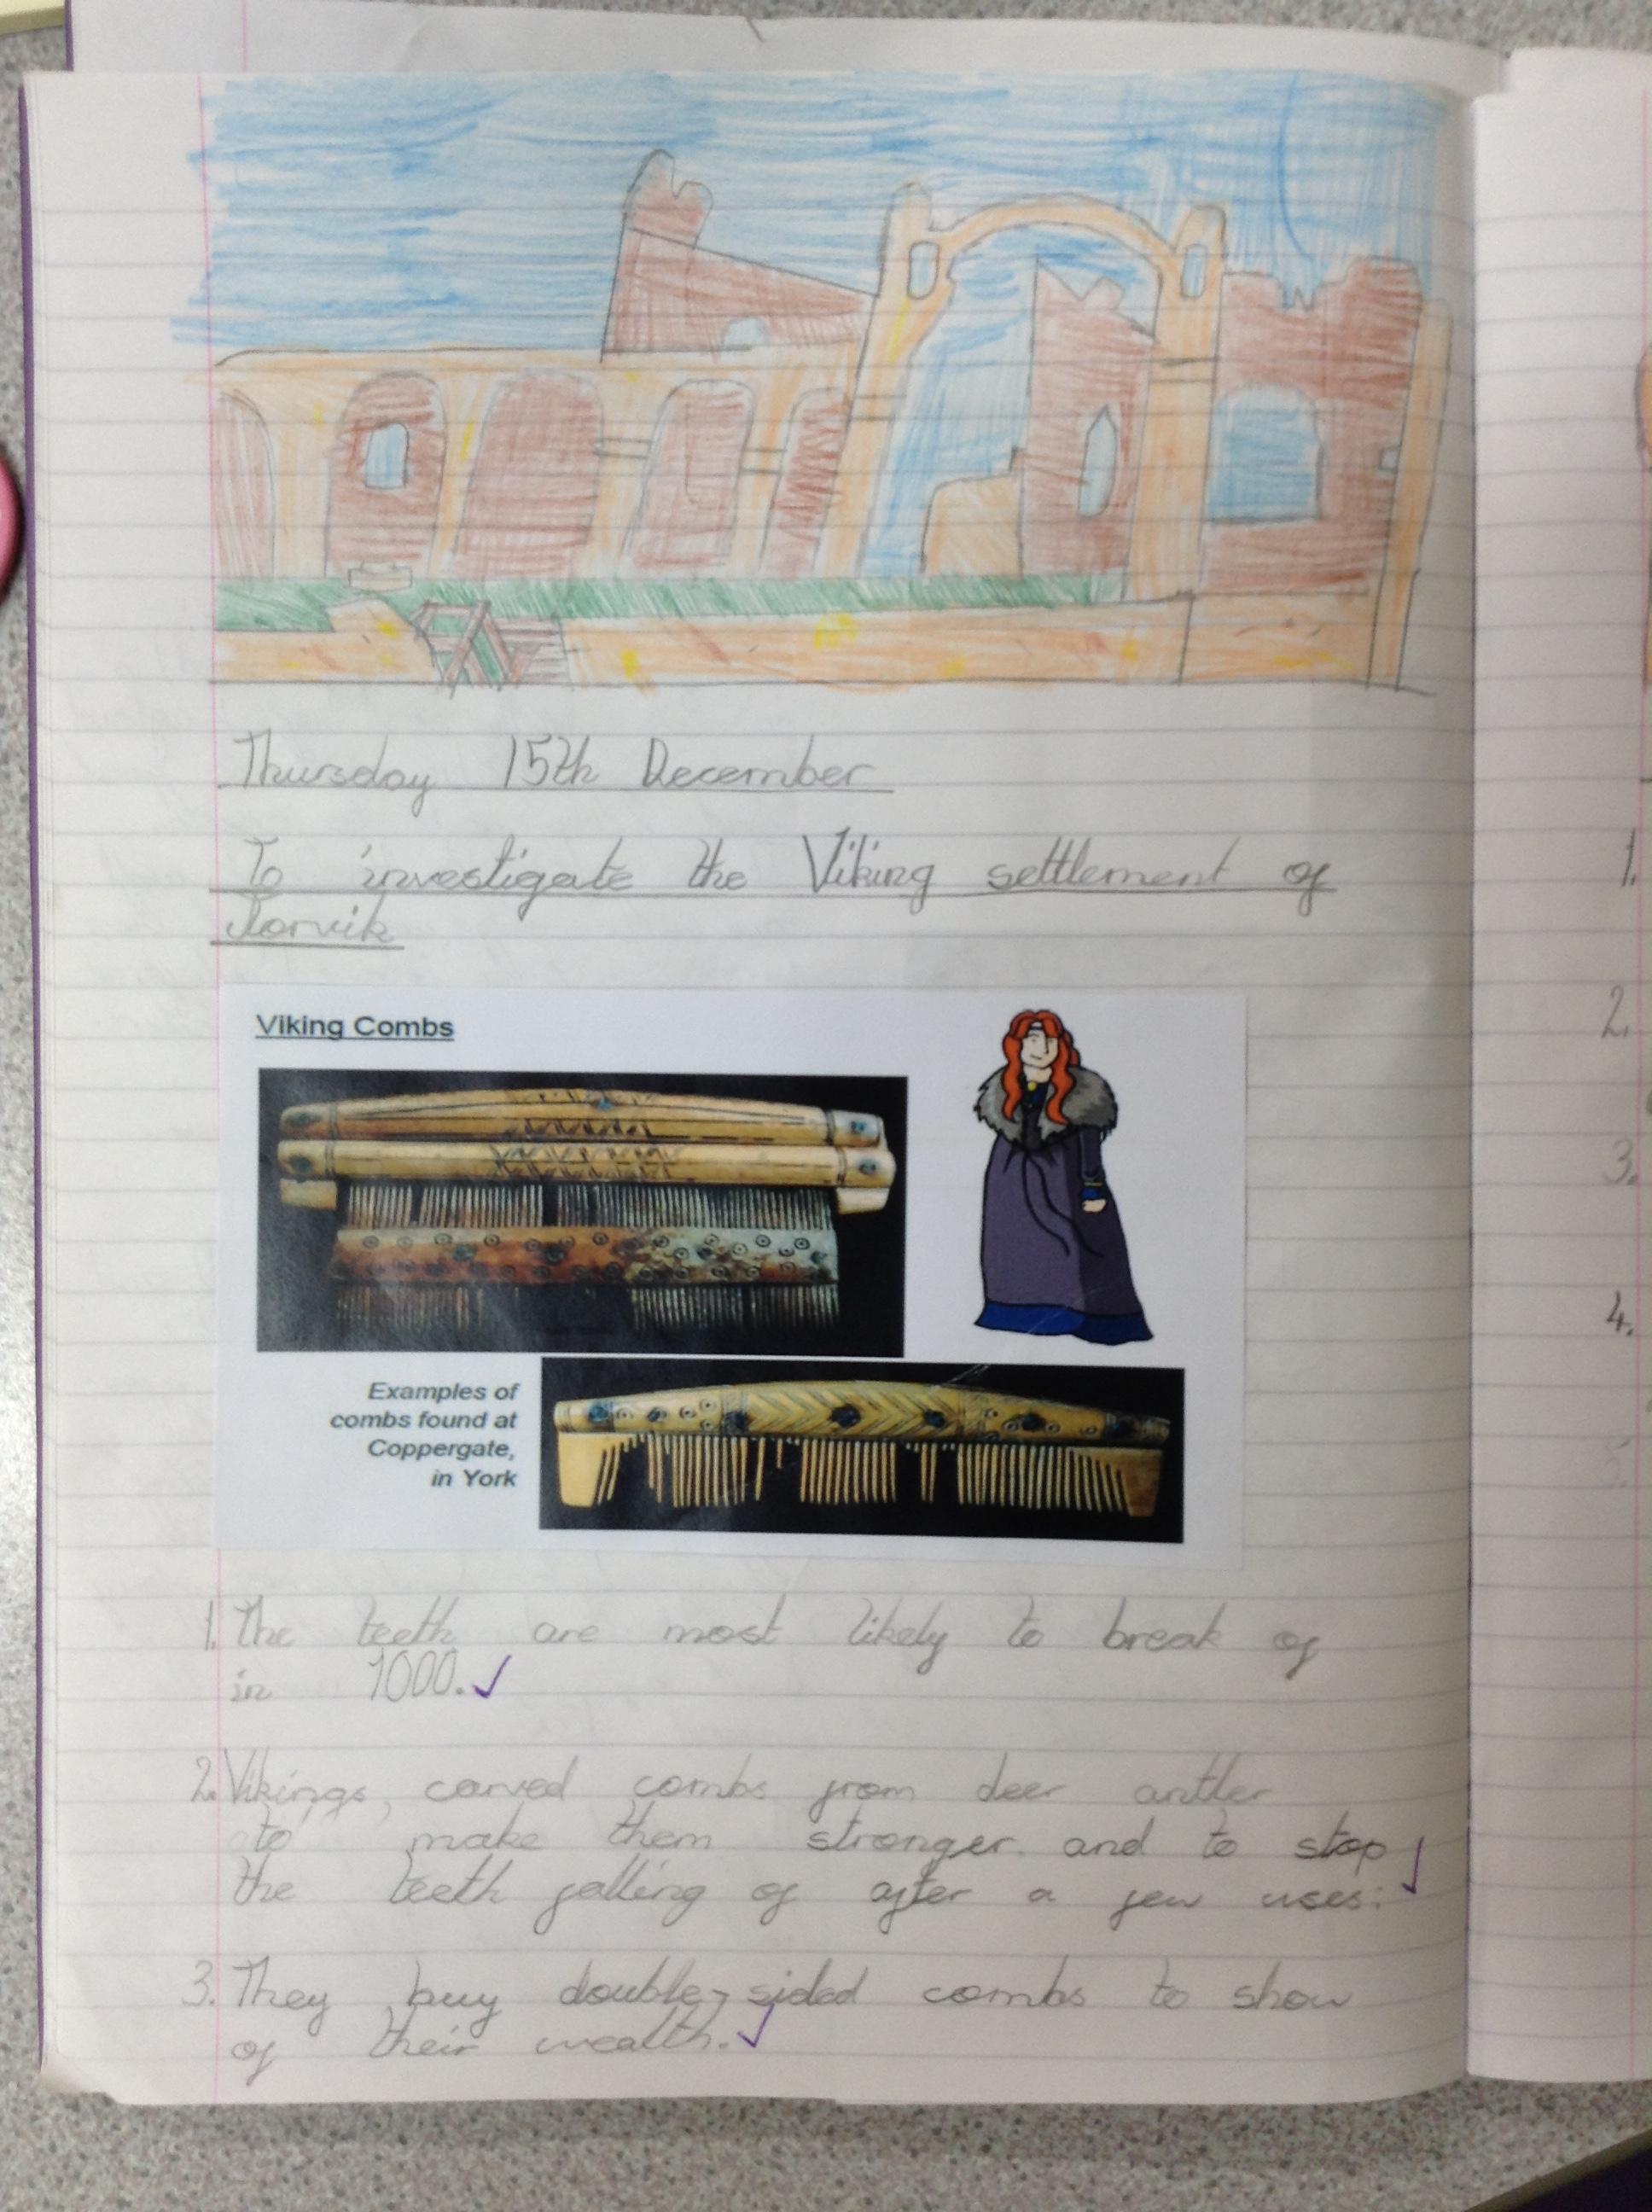 Thursday 15th December
To investigate the Viking settlement of
Jorvik
Viking Combs
Examples of
combs found at
Coppergate,
in York
1. The teeth are most likely to break of
in 1000.
2. Vikings, carved combs from deer antler
to make them stronger. and to stop
the teeth falling of after a few uses.
3. They buy double-sided combs to show
of their wealth.
1.
2.
3.
4.
5.